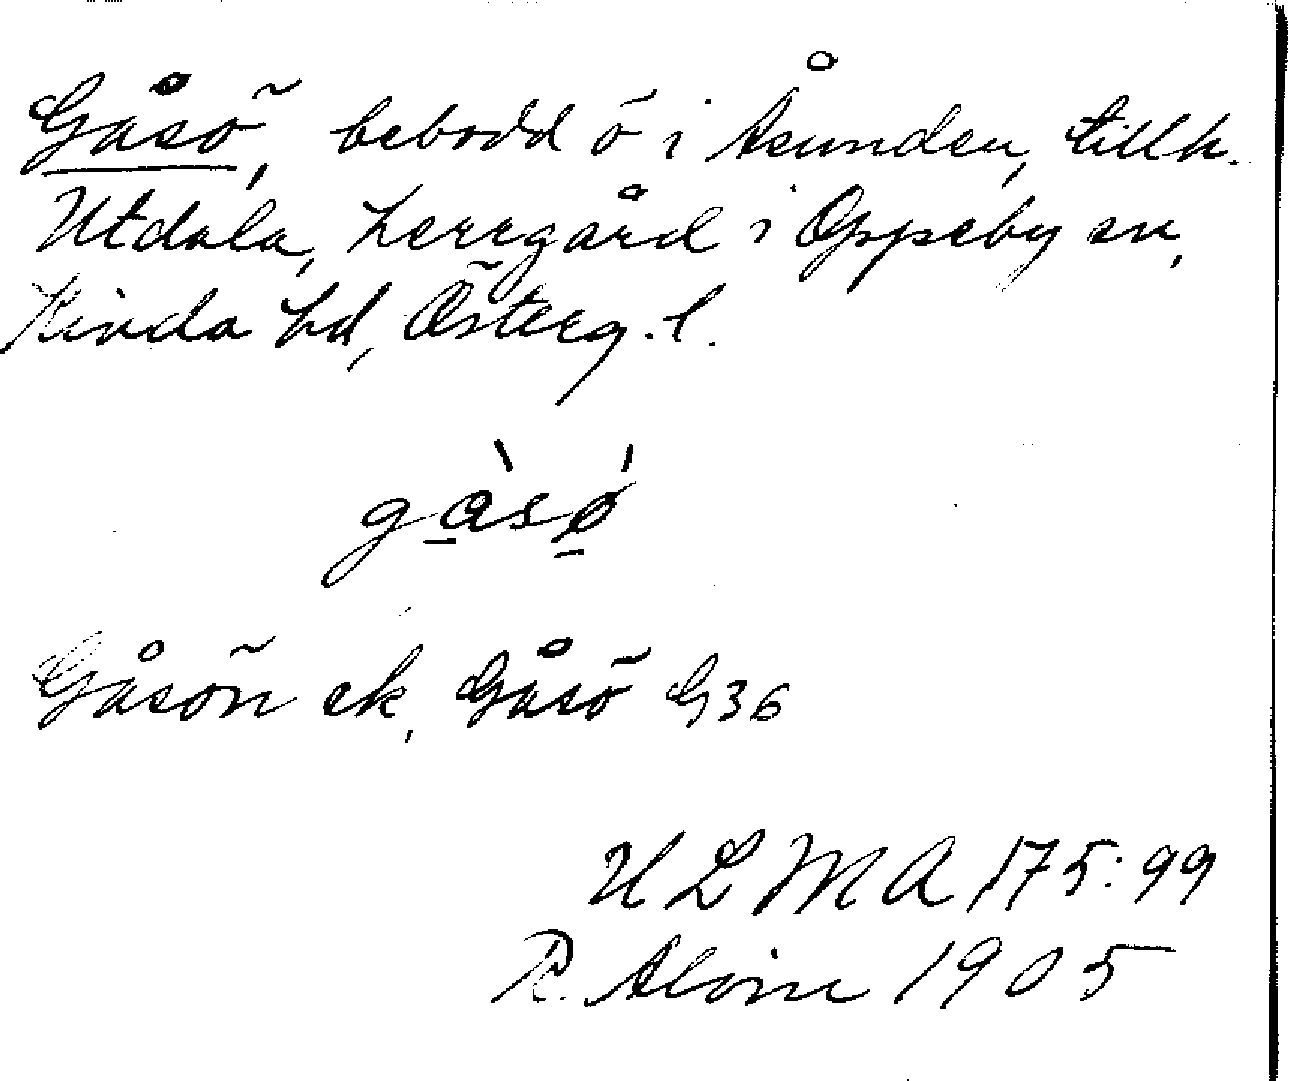 Gåsö, bebodd ö i Åsunden, tillh.
Utdala, herrgård i Oppeby sn,
Kinda hd, Österg. l.
gå̀sǿ
Gåsön ek, Gåsö G36
ULMA 175:99
R. Alvin 1905